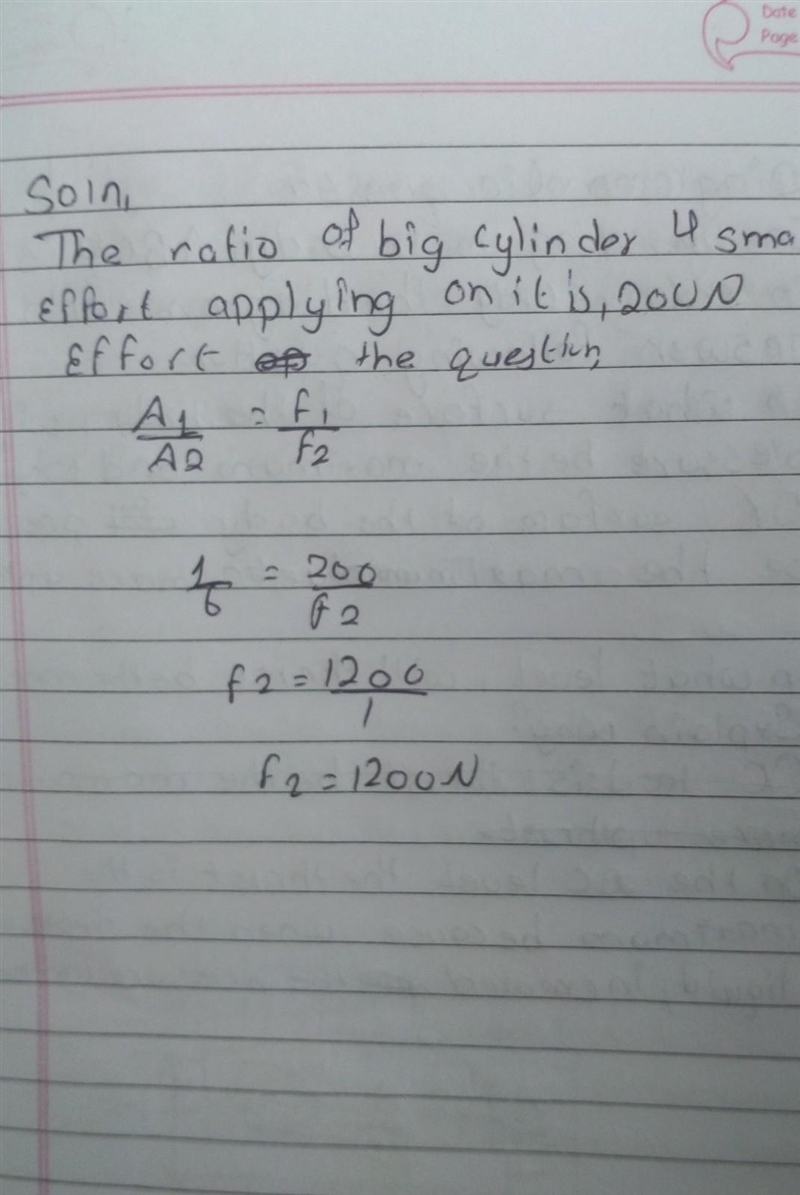 Date
Page
Soln,
The ratio of big cylinder 4 sma
Effort applying on it is, 200N
Effort the question,
A1/A2 = f1/f2
1/6 = 200/f2
f2 = 1200/1
f2 = 1200N